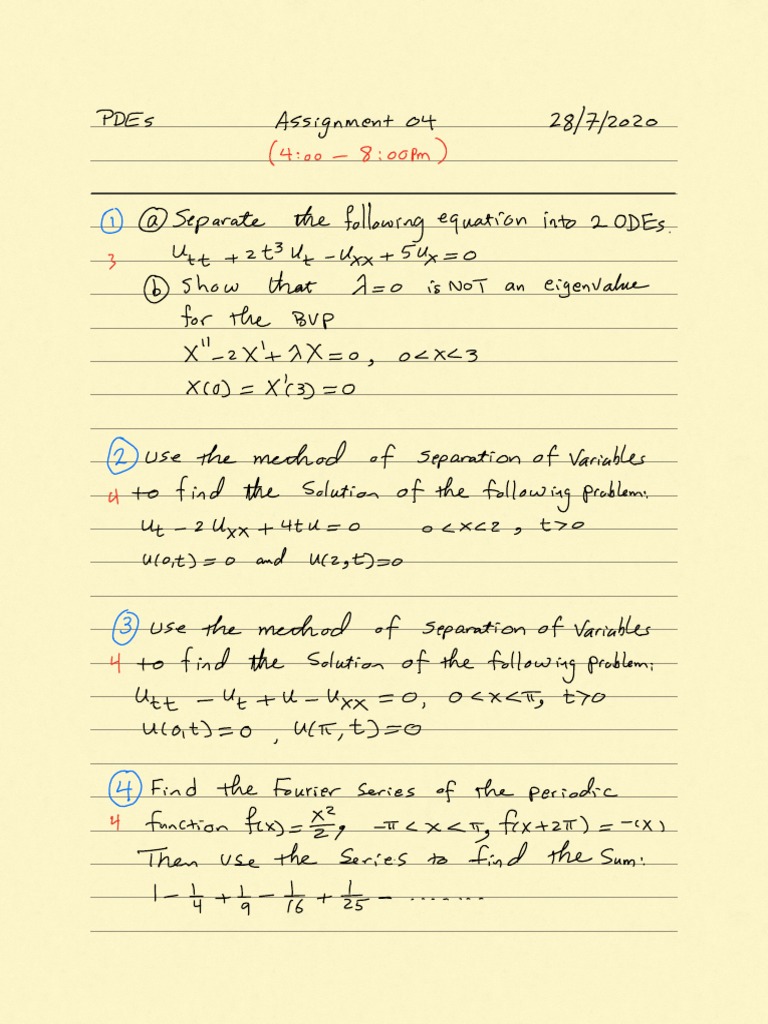 PDEs Assignment 04 28/7/2020
(4:00 – 8:00pm)
① ⓐ Separate the following equation into 2 ODEs.
3 u_tt + 2t³u_t - u_xx + 5u_x = 0
ⓑ Show that λ=0 is NOT an eigenvalue
for the BVP
X'' - 2X' + λX = 0, 0<x<3
X(0) = X'(3) = 0
② Use the method of separation of variables
4 to find the solution of the following problem:
u_t - 2u_xx + 4tu = 0 0<x<2, t>0
u(0,t) = 0 and u(2,t)=0
③ Use the method of separation of variables
4 to find the solution of the following problem:
u_tt - u_t + u - u_xx = 0, 0<x<π, t>0
u(0,t) = 0, u(π,t) = 0
④ Find the Fourier series of the periodic
4 function f(x) = x²/2, -π<x<π, f(x+2π) = -(x)
Then use the series to find the sum:
1 - 1/4 + 1/9 - 1/16 + 1/25 - ........